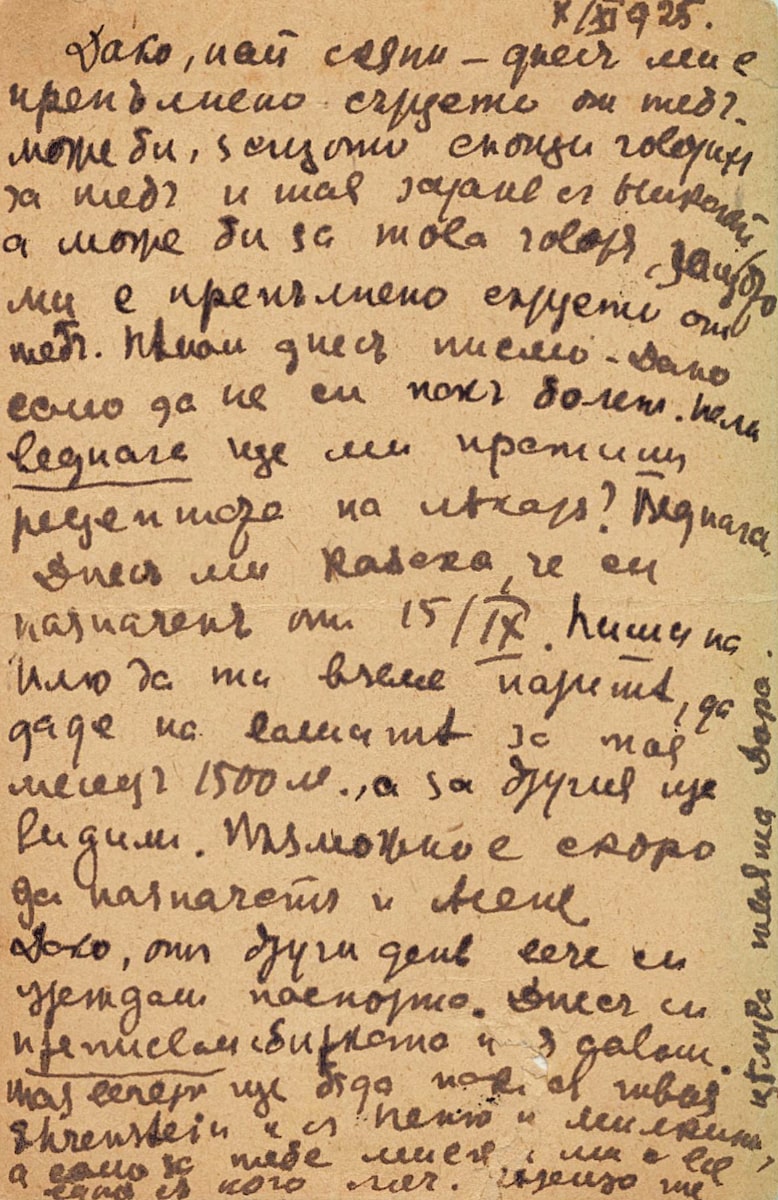 X/XI 925.
Дако, най скѫпи – днесъ ми е
препълнено сърдцето отъ тебъ.
може би, защото снощи говорихъ
за тебъ и тая заранъ съ
а може би за това говоря, защото
ми е препълнено сърдцето отъ
тебъ. Нѣмам днесъ писмо – Дако
само да не си пакъ боленъ. Нали
веднага ще ми пратишъ
рецептата на лѣкаря? Веднага.
Днесъ ми казаха, че си
назначенъ отъ 15/IX. Пиши на
Илю да ти вземе паритѣ, да
даде на нашитѣ за тоя
месецъ 1500 л., а за другия ще
видим. Възможно е скоро
да назначатъ и мене
Дако, отъ други день вече си
уреждам паспорта. Днесъ си
преписвам сбирката и я давам.
тая вечерь ще бѫда пакъ съ твоя
Ehrenstein и съ Пеню и Милкини,
а само за тебе мисля и ми е все
едно съ кого съмъ.
цѣлува твоята Дора.